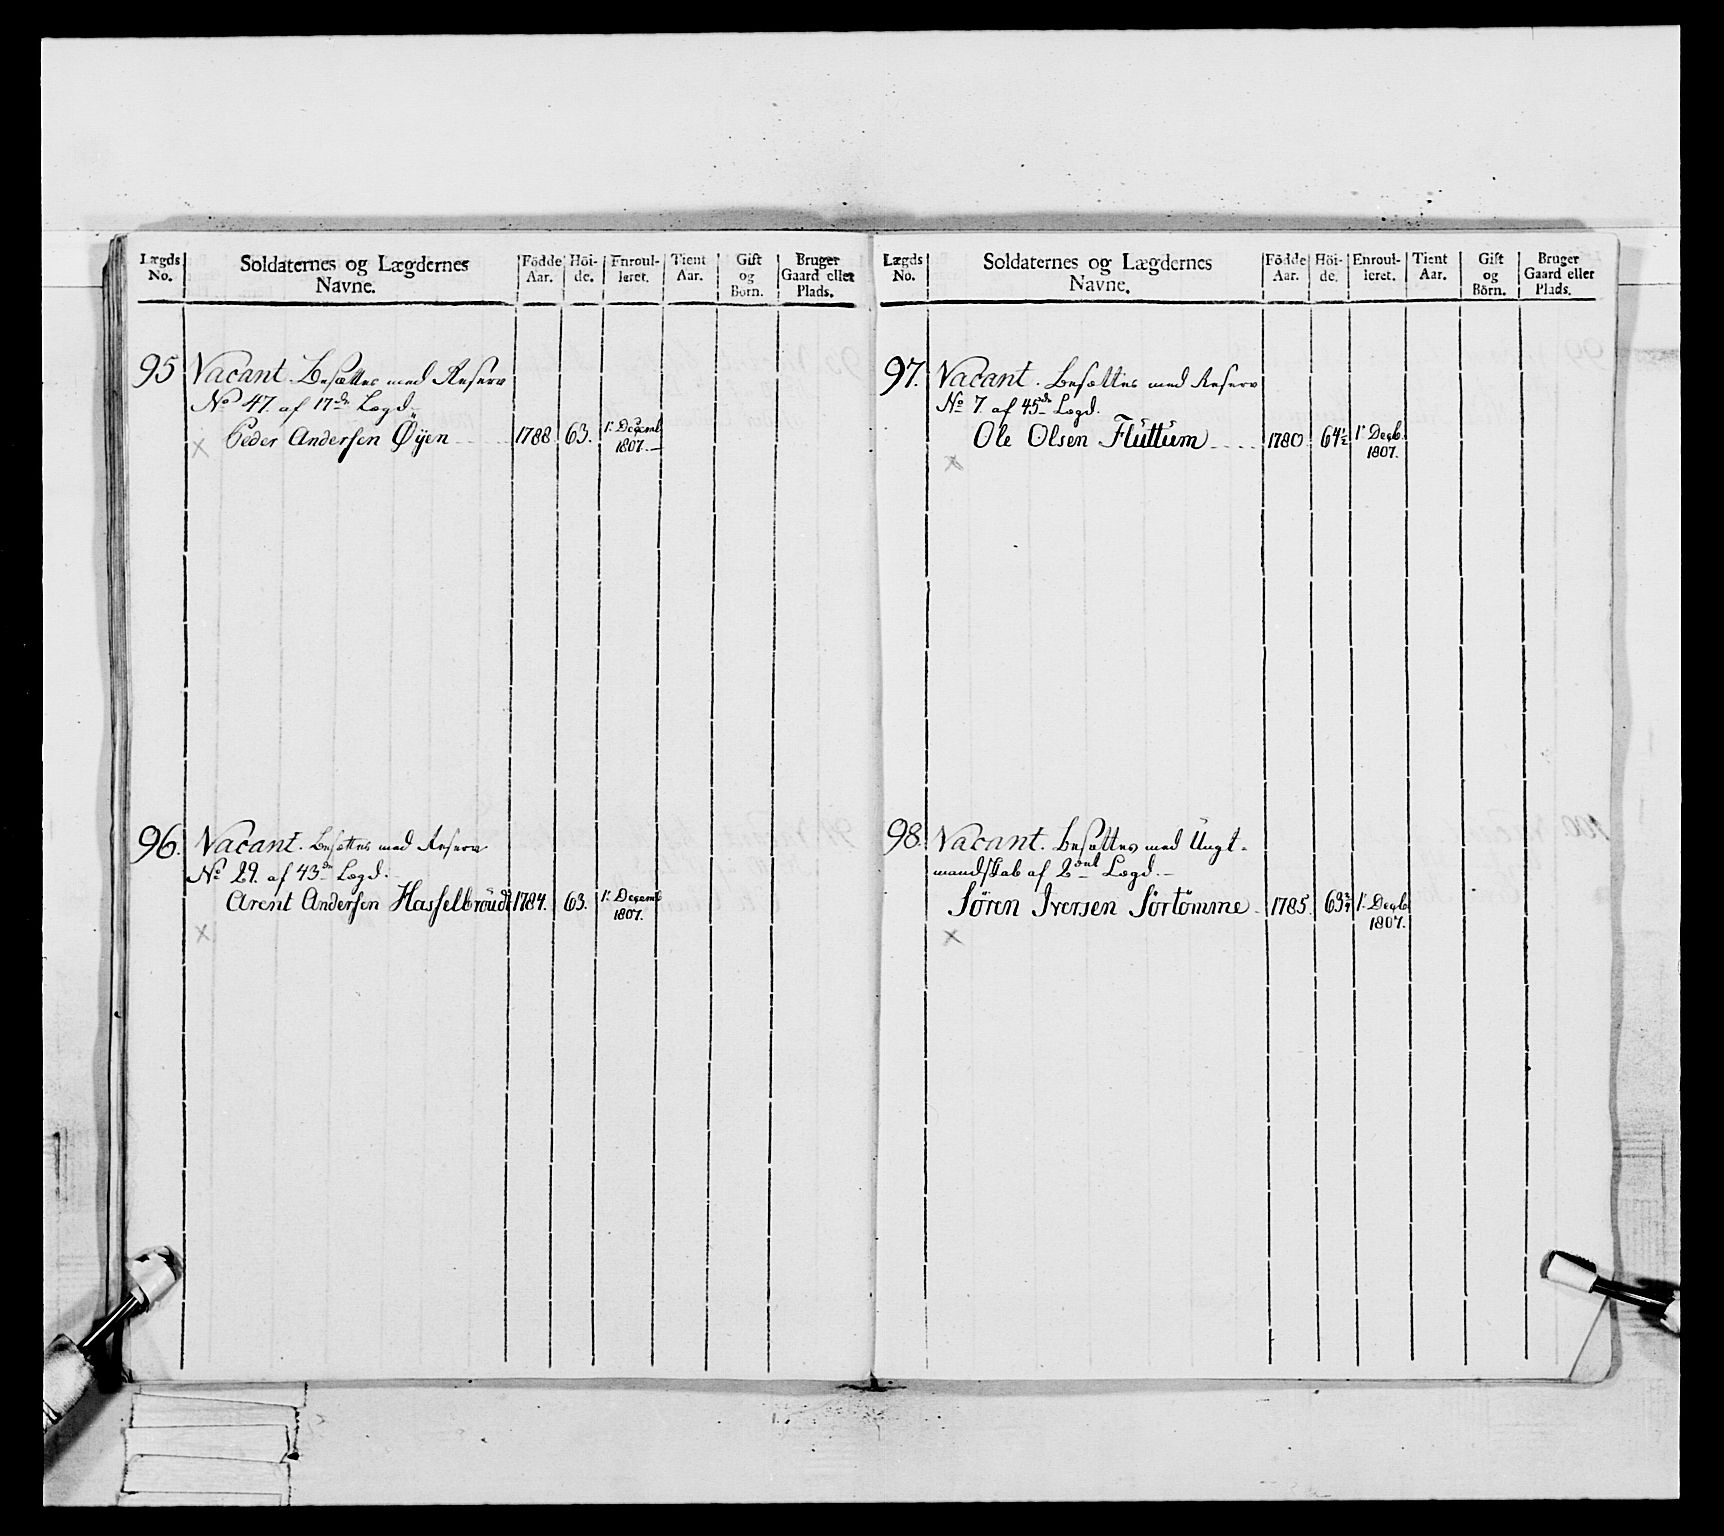 Lægds No.
Soldaternes og Lægdernes Navne.
Födde Aar.
Höi-de.
Enroul-leret.
Tient Aar.
Gift og Börn.
Bruger Gaard eller Plads.
95 Vacant. Besættes med Reserv
No 47. af 17de Lægd
Peder Andersen Öÿen 1788 63. 1te Decemb
1807.
96. Vacant. Besættes med Reserv
No 29. af 43de Lægd.
Arent Andersen Hasselbroüdt 1784. 63. 1te Decemb
1807.
Lægds No.
Soldaternes og Lægdernes Navne.
Födde Aar.
Höi-de.
Enroul-leret.
Tient Aar.
Gift og Börn.
Bruger Gaard eller Plads.
97. Vacant. Besættes med Reserv
No 7. af 45de Lægd.
Ole Olsen Flüttüm 1780 64½ 1te Decb.
1807.
98. Vacant. Besættes med Üngt-
mandskab af 2det Lægd.
Sören Iversen Sörtömme 1785. 63¾ 1te Decb.
1807.